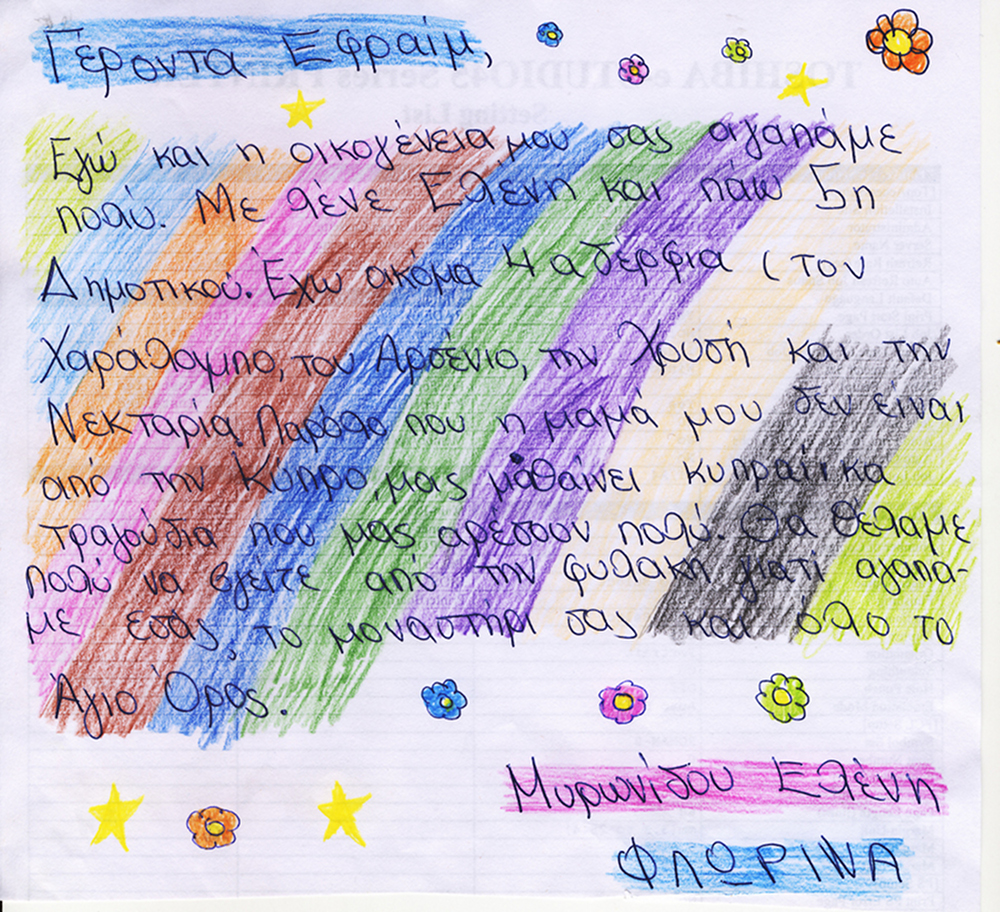 Γέροντα Εφραίμ,
Εγώ και η οικογένεια μου σας αγαπάμε
πολύ. Με λένε Ελένη και πάω 5η
Δημοτικού. Έχω ακόμα 4 αδέρφια (τον
Χαράλαμπο, τον Αρσένιο, την Χρυσή και την
Νεκταρία. Παρόλο που η μαμά μου δεν είναι
από την Κύπρο, μας μαθαίνει κυπραίικα
τραγούδια που μας αρέσουν πολύ. Θα θέλαμε
πολύ να βγείτε από την φυλακή γιατί αγαπά-
με εσάς, το μοναστήρι σας και όλο το
Άγιο Όρος.
Μυρωνίδου Ελένη
ΦΛΩΡΙΝΑ